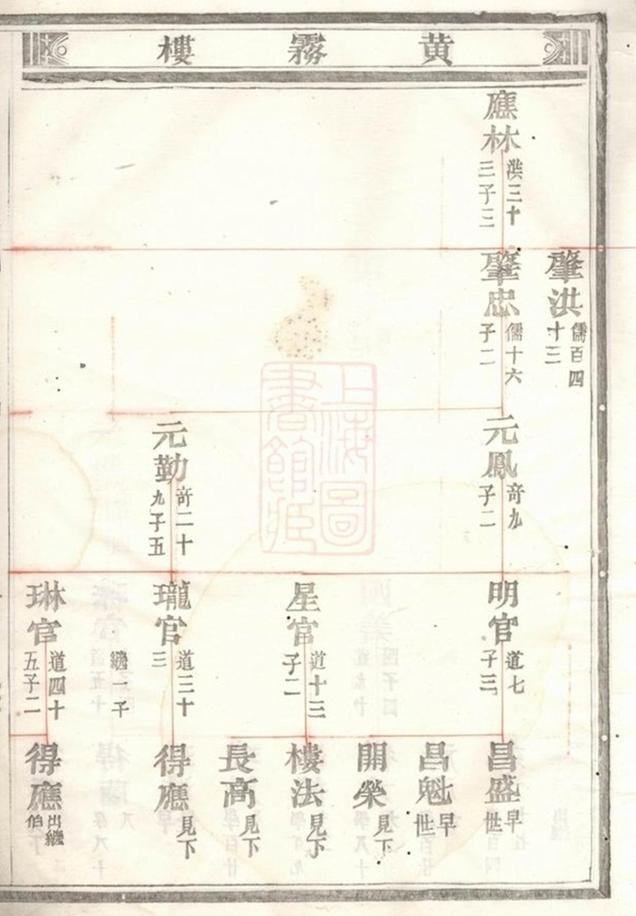 黄霧樓
應林
洪三十
三子三
肇洪
儒百四
十三
肇忠
儒十六
子二
元鳳
竒九
子二
元勤
竒二十
九子五
明官
道七
子三
星官
道十三
子二
瓏官
道三十
三
繼一子
琳官
道四十
五子二
昌盛
早
世
昌魁
早
世
開榮
見下
樓法
見下
長高
見下
得應
見下
得應
出繼
伯
上海圖
書館藏